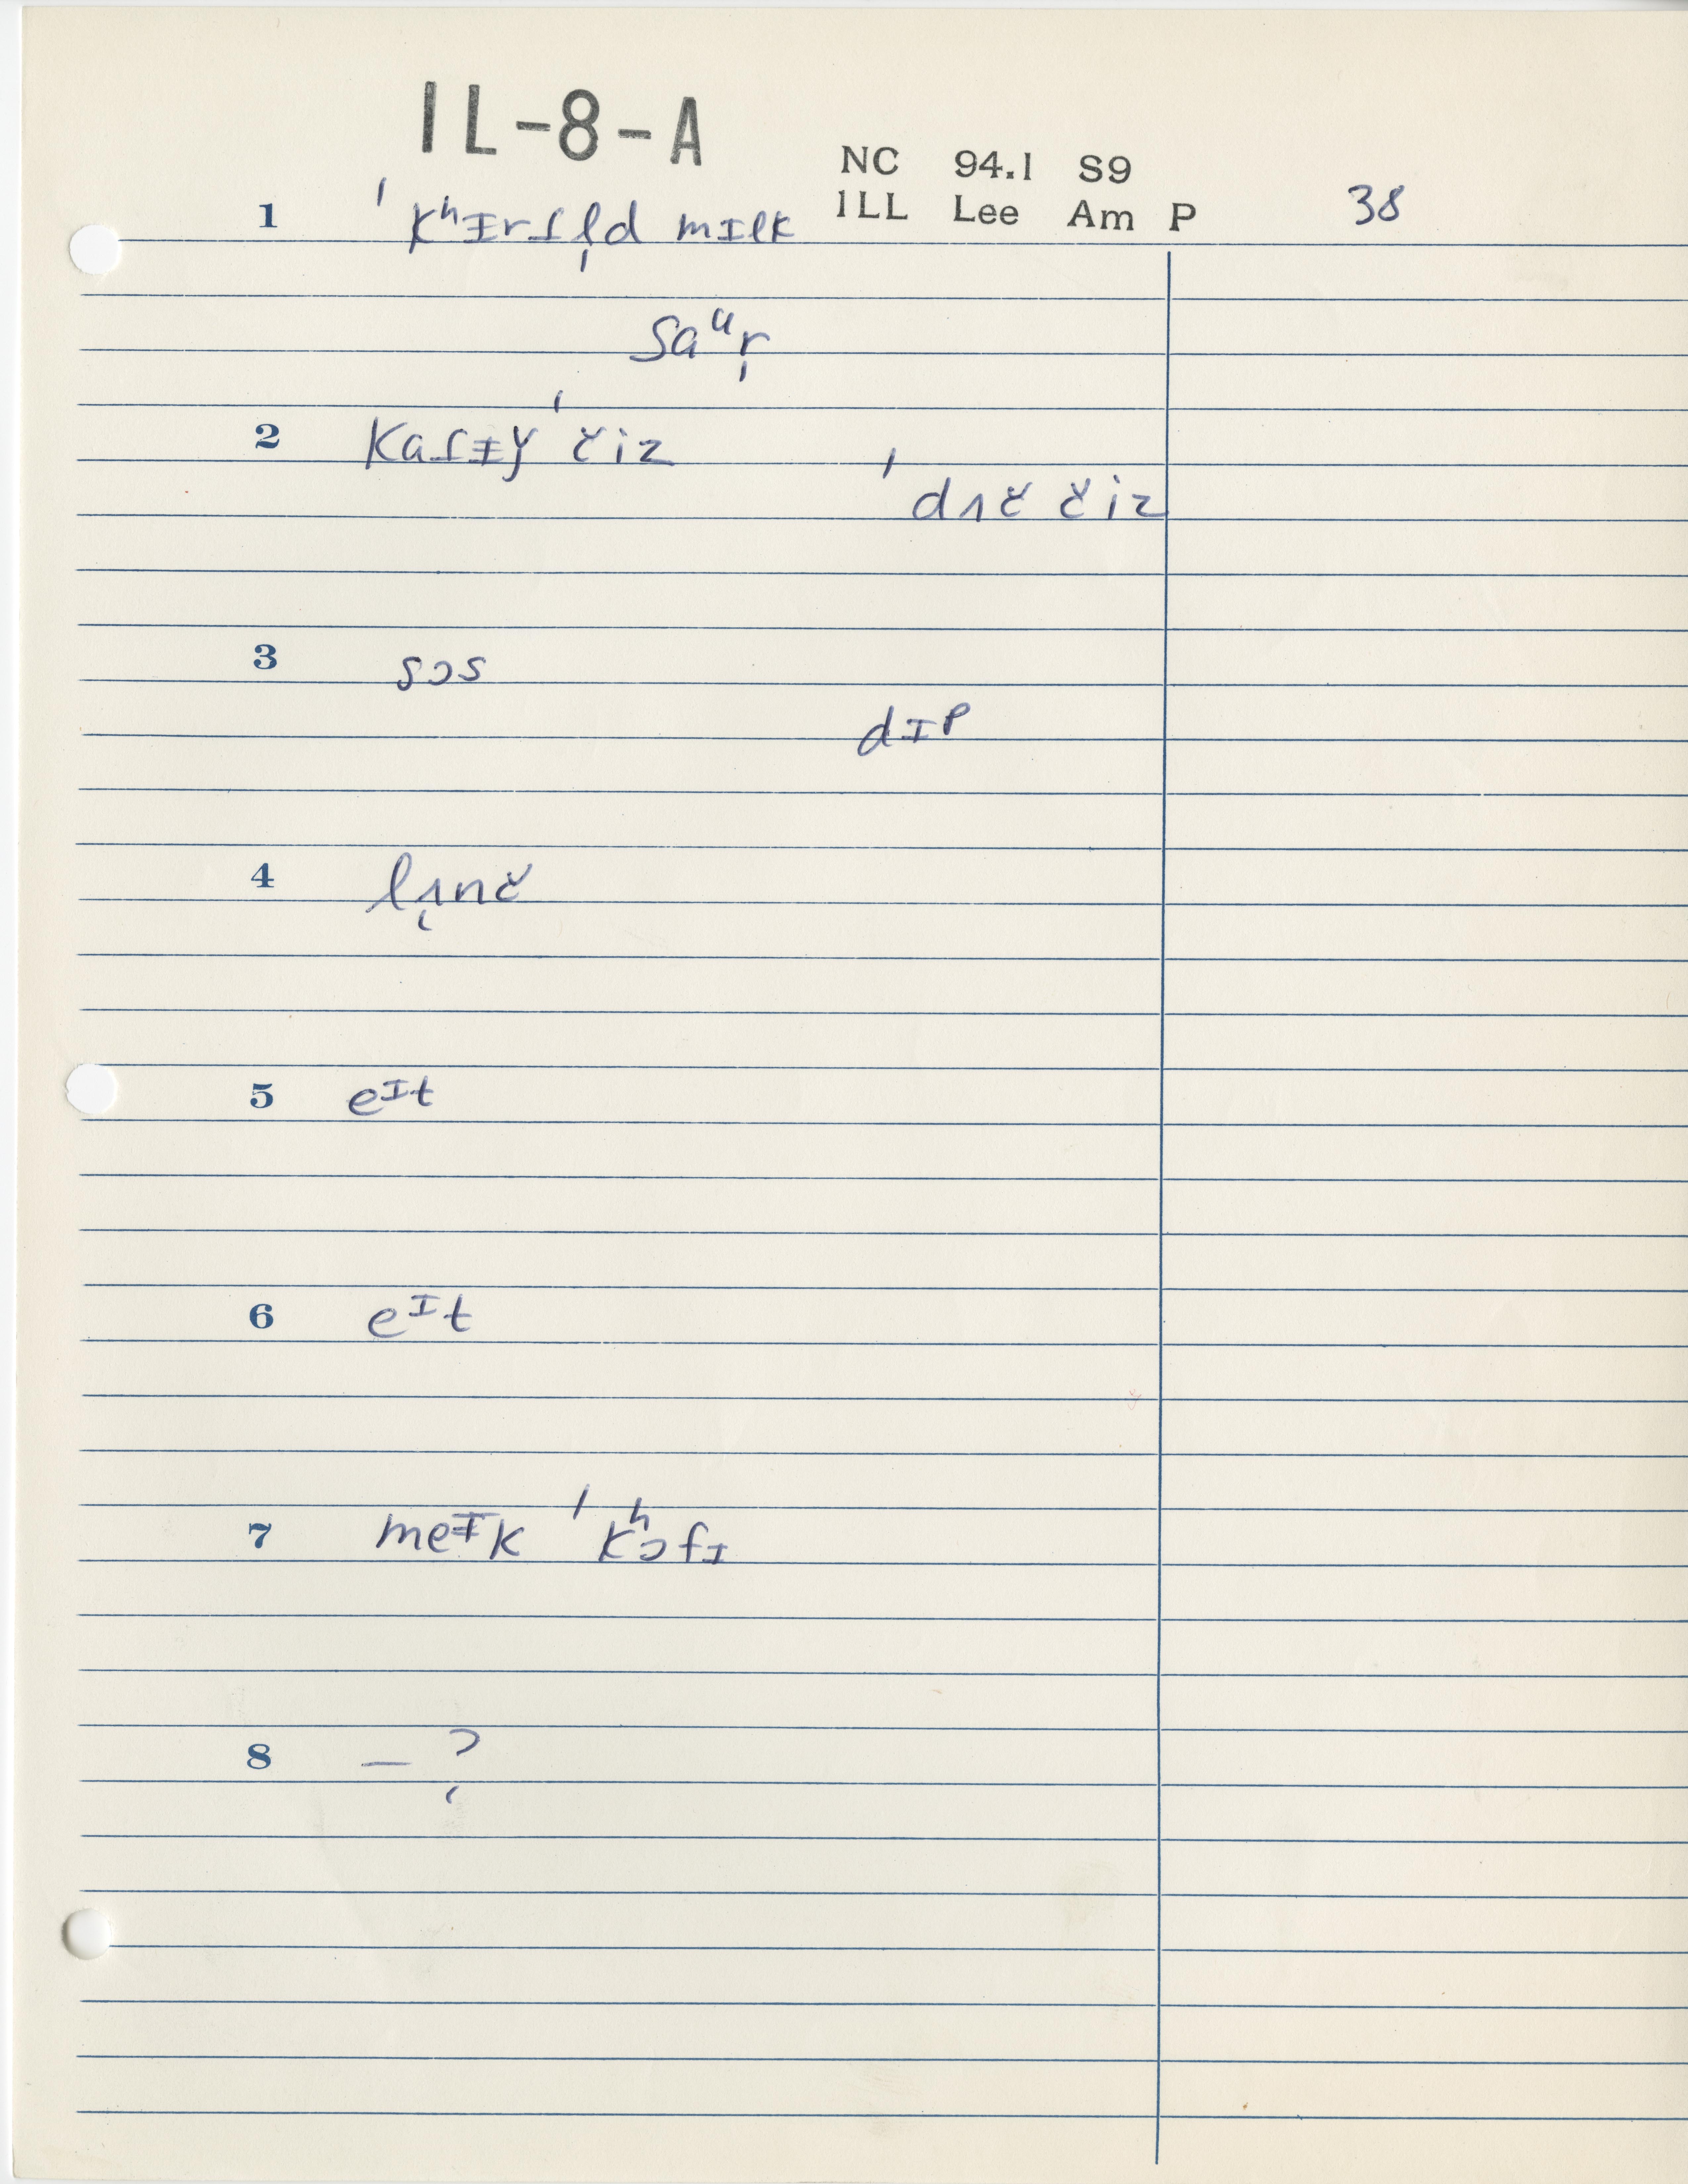 IL-8-A
NC 94.1 S9
ILL Lee Am P
38
1 ˈkʰɪrdl̩d mɪlk
saᵘr̩
2 ˈčiz
ˈdʌč čiz
3 sɔs
dɪp
4 lʌnč
5 eᴵt
6 eᴵt
7 meᴵk ˈkʰɔfɪ
8 — ?